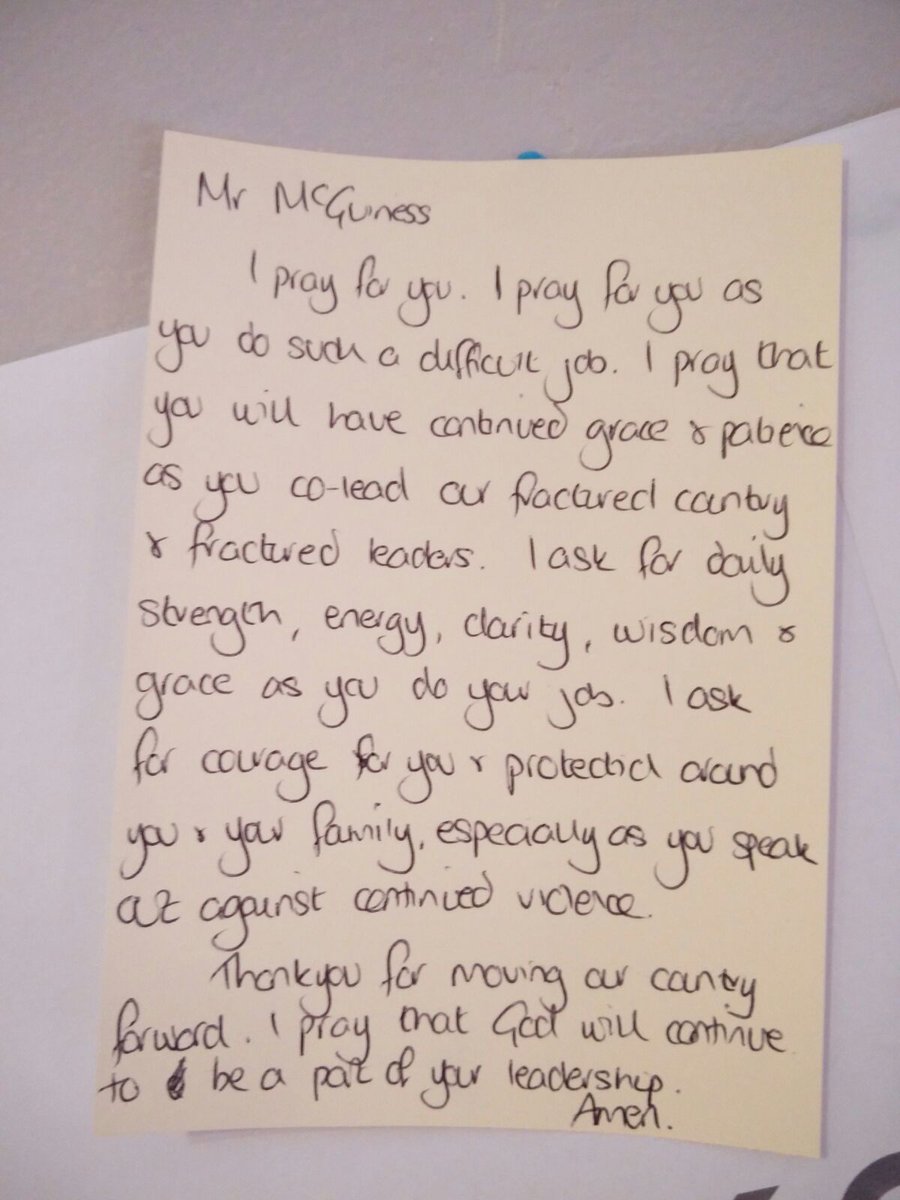 Mr McGuiness
I pray for you. I pray for you as
you do such a difficult job. I pray that
you will have continued grace & patience
as you co-lead our fractured country
& fractured leaders. I ask for daily
strength, energy, clarity, wisdom &
grace as you do your job. I ask
for courage for you & protection around
you & your family, especially as you speak
out against continued violence.
Thankyou for moving our country
forward. I pray that God will continue
to be a part of your leadership.
Amen.